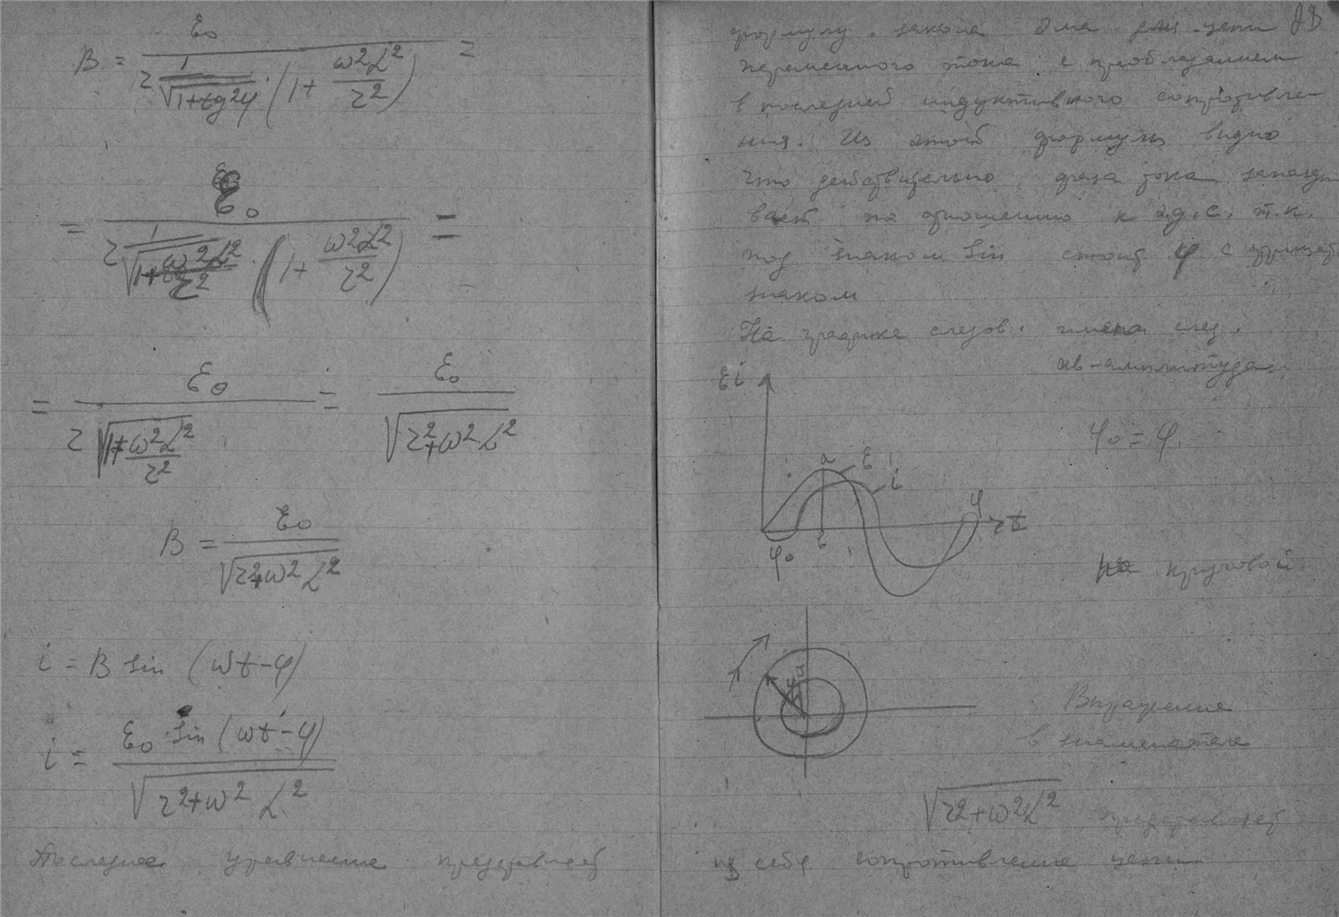 B = ε₀ / (r 1/√(1+tg²φ) · (1 + ω²L²/r²)) =
= ε₀ / (r 1/√(1+ω²L²/r²) · (1 + ω²L²/r²)) =
= ε₀ / (r √(1+ω²L²/r²)) = ε₀ / √(r²+ω²L²)
B = ε₀ / √(r²+ω²L²)
i = B sin (ωt-φ)
i = ε₀ sin (ωt-φ) / √(r²+ω²L²)
Последнее уравнение представляет
формулу закона Ома для цепи
переменного тока с преобладанием
в последней индуктивного сопротивле-
ния. Из этой формулы видно
что действительно фаза тока запазды
вает по отношению к э.д.с. т.к.
под знаком sin стоит φ с отрицат
знаком
На графике следов. имена след.
ав-амплитуда
ε i
φ₀ = φ
a ε
i
φ
t
φ₀ в
На круговой
Выражение
в знаменателе
√(r²+ω²L²) представляет
из себя сопротивление цепи